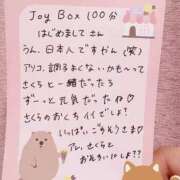 Joy Box 100分
はじめまして さん
うん、日本人ですかん(笑)
アソコ、調子よくないかも〜って
さくらと一緒だったら
ずーっと元気だったね♡
さくらのおくちイイでしょ?
いっぱいごちそうさま♡
アレ、さくらと
おそろいでしょ??